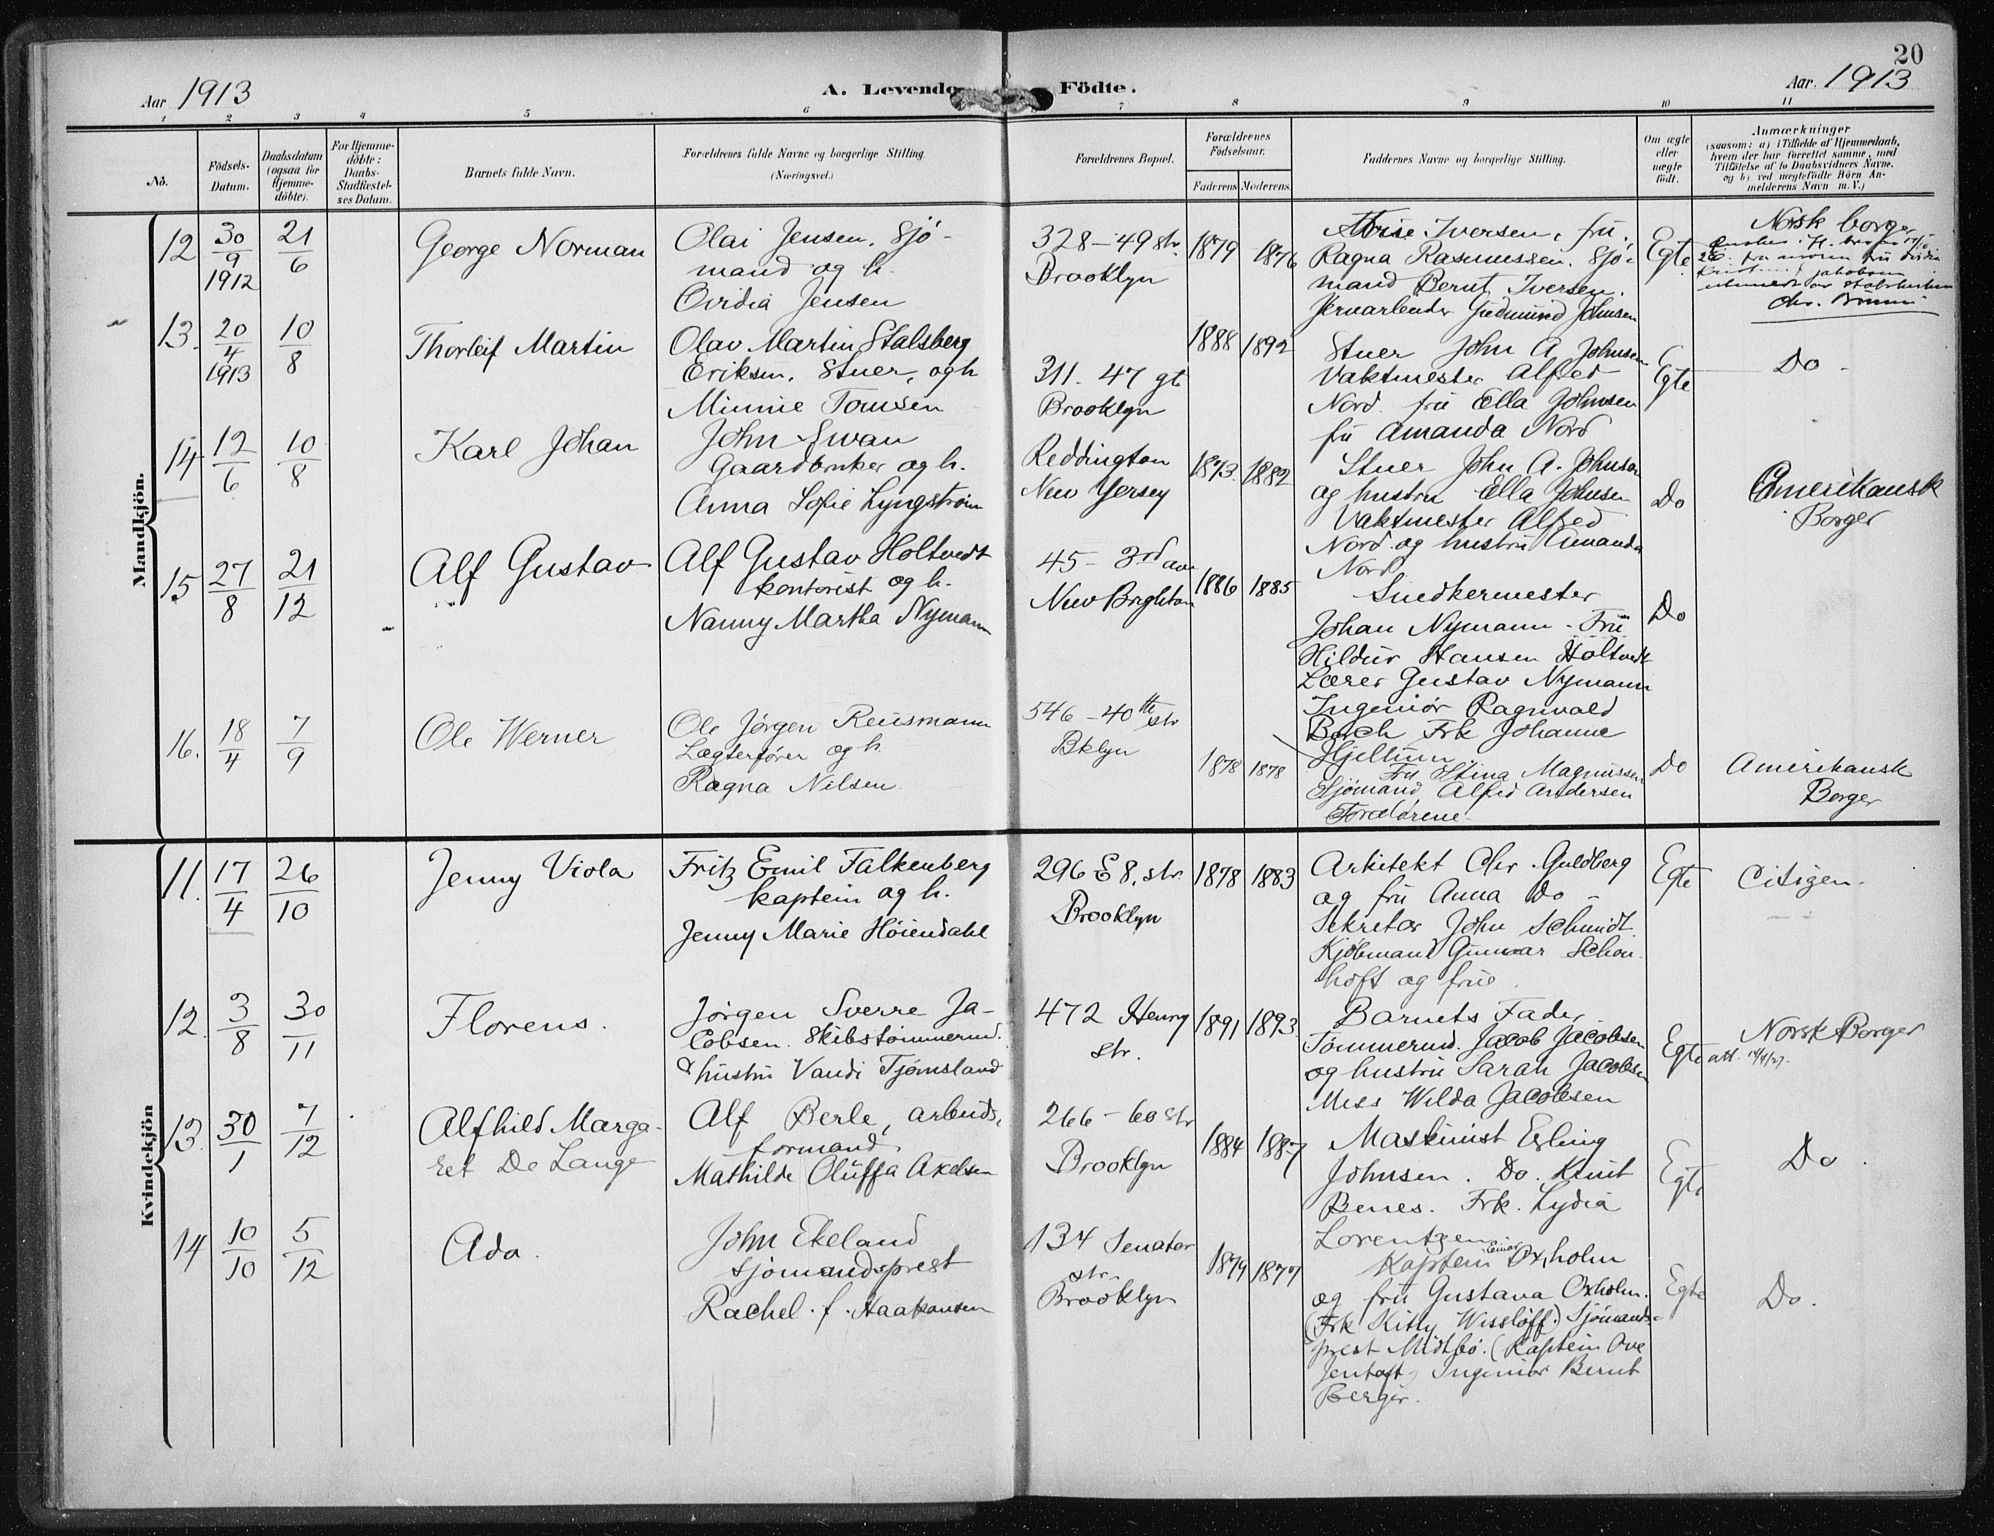 20
Aar 1913
A. Levende Födte.
Aar. 1913
1 2 3 4 5 6 7 8 9 10 11
No.
Födsels-Datum.
Daabsdatum (ogsaa for Hjemme-döbte).
For Hjemme-döbte: Daabs-Stadfæstel-ses Datum.
Barnets fulde Navn.
Forældrenes fulde Navne og borgerlige Stilling. (Næringsvei.)
Forældrenes Bopæl.
Forældrenes Födselsaar.
Faderens Moderens.
Faddernes Navne og borgerlige Stilling.
Om ægte eller uægte födt.
Anmærkninger
(saasom: a) i Tilfælde af Hjemmedaab,
hvem der har forrettet samme, med
Tilföielse af to Daabsvidners Navne.
og b) ved uægtefödte Börn An-
melderens Navn m. V.)
Mandkjön.
12 30/9 1912 21/6
George Norman
Olai Jensen, Sjö-
mand og h.
Ovidia Jensen
328 - 49 str.
Brooklyn
1879 1876
Iversen, fru,
Ragna Rasmussen. Sjö-
mand Bernt Iversen.
Jernarbeider Gudmund Johnsen
Egte
Norsk borger
13. 20/4 1913 10/8
Thorleif Martin
Olav Martin Stalsberg
Eriksen, Stuer, og h
Minnie Tomsen
311. 47 gt
Brooklyn
1888 1892
Stuer John A Johnsen
Vaktmester Alfred
Nord. fru Ella Johnsen
fru Amanda Nord
Egte
Do
14 12/6 10/8
Karl Johan
John Swan
Gaardbruker og h.
Anna Sofie Lyngström
Reddington
New Yersey
1873. 1882
Stuer John A. Johnson
og hustru Ella Johnsen
Vaktmester Alfred
Nord og hustru Amanda
Nord
Do
Amerikansk
Borger
15 27/8 21/12
Alf Gustav
Alf Gustav Holtvedt
kontorist og h.
Nanny Martha Nymann
45 - 3rd av
New Brighton
1886 1885
Snedkermester
Johan Nymann - Fru
Hildur Hansen Holtvedt
Lærer Gustav Nymann
Ingeniør Ragnvald
Bach Frk Johanne
Hjeltum
Do
16. 18/4 7/9
Ole Werner
Ole Jørgen Reusmann
Lægterfører og h.
Ragna Nilsen
546 - 40th str
Bklyn
1878 1878
Fru Stina Magnussen
Sjömand Alfred Andersen
Forældrene
Do
Amerikansk
Borger
Kvindekjön
11. 17/4 26/10
Jenny Viola
Fritz Emil Falkenberg
kaptein og h.
Jenny Marie Höiendahl
296 E 8. str.
Brooklyn
1878 1883
Arkitekt Chr. Guldberg
og fru Anna Do -
Sekretær John Schmidt
Kjöbmand Gunnar Schou
hoft og frue.
Egte
Citigen.
12. 3/8 30/11
Florens.
Jørgen Sverre Ja-
cobsen. Skibstømmermd.
& hustru Vandi Tjømsland
472 Henry
str.
1891 1893
Barnets Fader
Tømmermd. Jacob Jacobsen
og hustru Sarah Jacobsen
Miss Wilda Jacobsen
Egte
Norsk Borger
att. 14/4/27.
13. 30/1 7/12
Alfhild Marga-
ret De Lange
Alf Berle, arbeids,
formand
Mathilde Oluffa Axelsen
266 - 60 str
Brooklyn
1884 1887
Maskinist Erling
Johnsen. Do. Knut
Benes. Frk. Lydia
Lorentzen.
Egte
Do.
14 10/10 5/12
Ada.
John Ekeland
Sjömandsprest
Rachel. f. Haakonsen
134 Senator
str.
Brooklyn
1879 1877
Kaptein Einar Oxholm
og fru Gustava Oxholm.
(Frk Kitty Wissløff.) Sjömands-
prest Midtbö. (Kaptein Ove
Jentoft, Ingeniör Bernt
Berger.
Egte
Do.